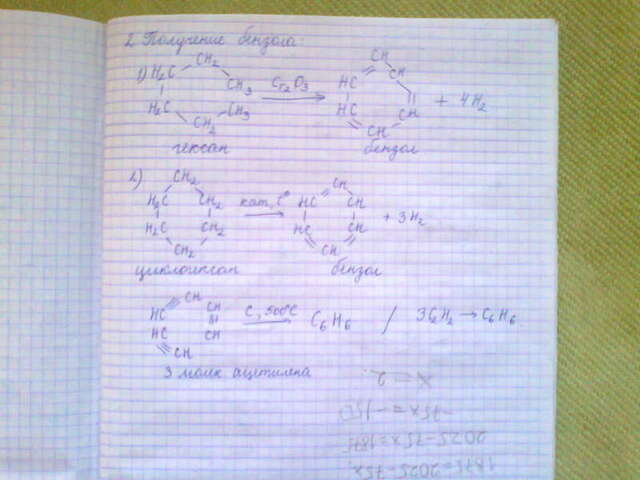 2. Получение бензола.
1) H₂C CH₂ CH₃ H₂C CH₂ CH₃ Cr₂O₃ → HC CH CH HC CH CH + 4H₂
гексан бензол
2) CH₂ H₂C CH₂ H₂C CH₂ CH₂ кат., t° → CH HC CH HC CH CH + 3H₂
циклогексан бензол
HC CH CH HC CH CH C, 500°C → C₆H₆ / 3C₂H₂ → C₆H₆
3 молек ацетилена
x = 2.
-75x = -150
2025-75x=1875
1875=2025-75x,